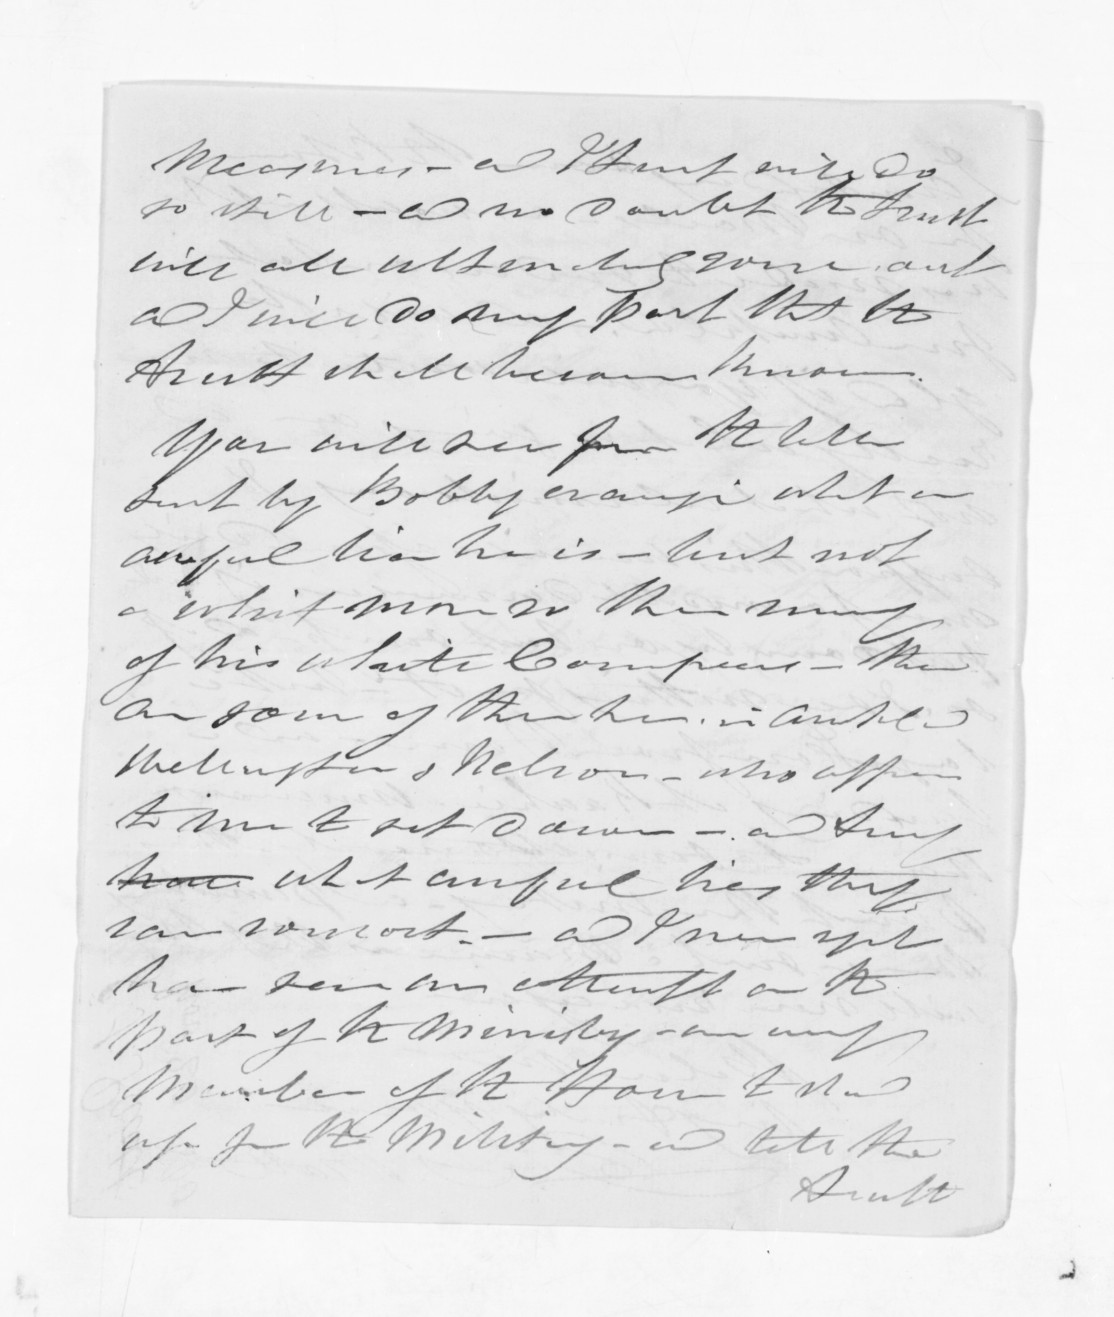 Measures - and I trust will do
so still - and no doubt the truth
will all ultimately come out
and I will do my part that the
truth shall become known.
You will see from the letter
sent by Bobby what an
awful liar he is - but not
a whit more so than many
of his white Compeers - there
are some of them here in Auckland
Wellington & Nelson - who appear
to me to sit down - and try
what awful lies they
can concoct. - and I never yet
have seen an attempt on the
part of the Ministry - or any
Member of the House to stand
up for the Military - and tell the
truth